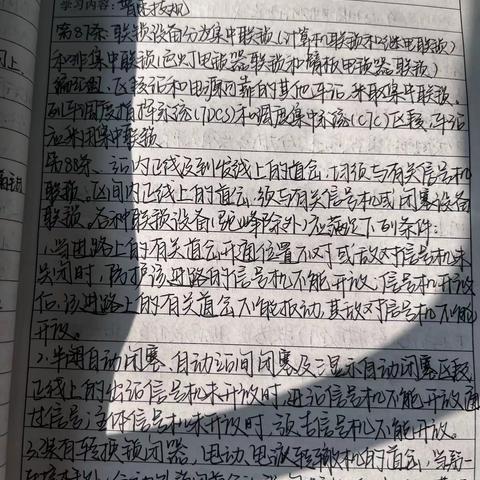 学习内容:
第87条:联锁设备分为集中联锁(计算机联锁和继电联锁)
和非集中联锁(色灯电锁器联锁和臂板电锁器联锁)
编组站、区段站和电源可靠的其他车站,采取集中联锁。
列车调度指挥系统(TDCS)和调度集中系统(CTC)区段,车站
应采用集中联锁
第88条、站内正线及到发线上的道岔,均须与有关信号机
联锁。区间内正线上的道岔,须与有关信号机或闭塞设备
联锁。各种联锁设备(驼峰除外)应满足下列条件:
1.当进路上的有关道岔开通位置不对或敌对信号机未
关闭时,防护该进路的信号机不能开放,信号机开放
后,该进路上的有关道岔不能扳动,其敌对信号机不能
开放。
2.半自动闭塞、自动站间闭塞及三显示自动闭塞区段
正线上的出站信号机未开放时,进站信号机不能开放通
过信号;主体信号机未开放时,预告信号机不能开放。
3.装有转换锁闭器、电动、电液转辙机的道岔,当第一